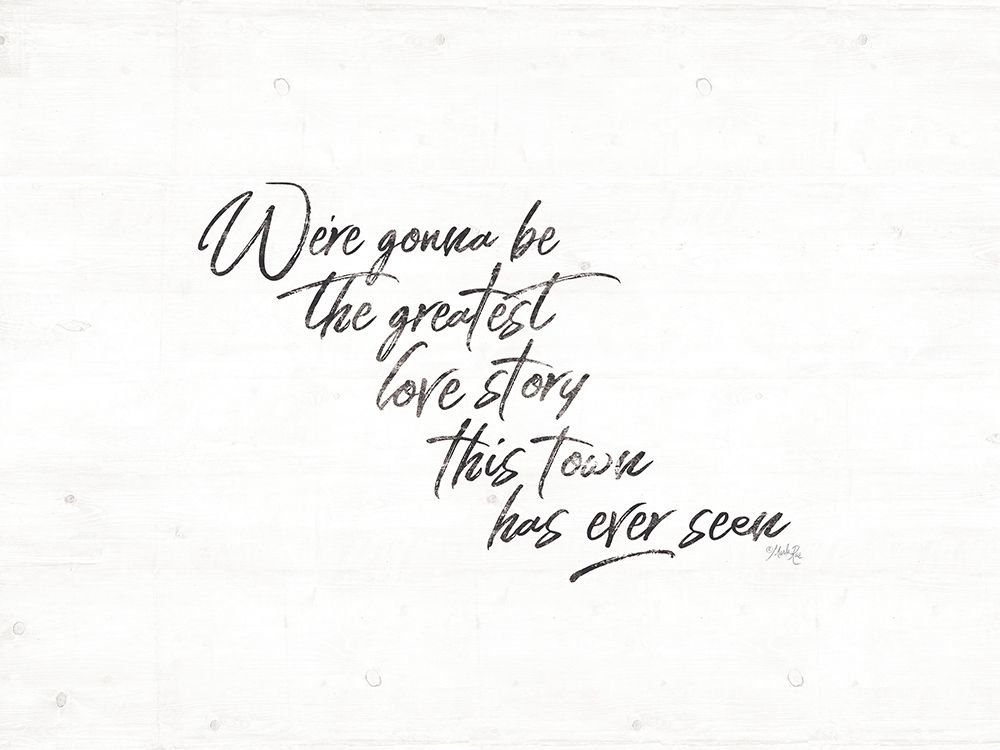 We're gonna be
the greatest
love story
this town
has ever seen
©Marla Rae